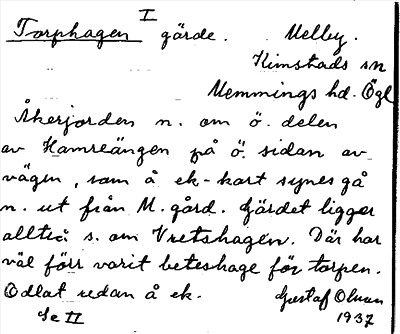 Torphagen I gärde. Melby.
Kimstads sn
Memmings hd. Ögl
Åkerjorden n. om ö. delen
av Hamreängen på ö. sidan av
vägen, som å ek-kart synes gå
n. ut från M. gård. Gärdet ligger
alltså s. om Vretshagen. Där har
väl förr varit beteshage för torpen.
Odlat redan å ek. Gustaf Olman
Se II 1937